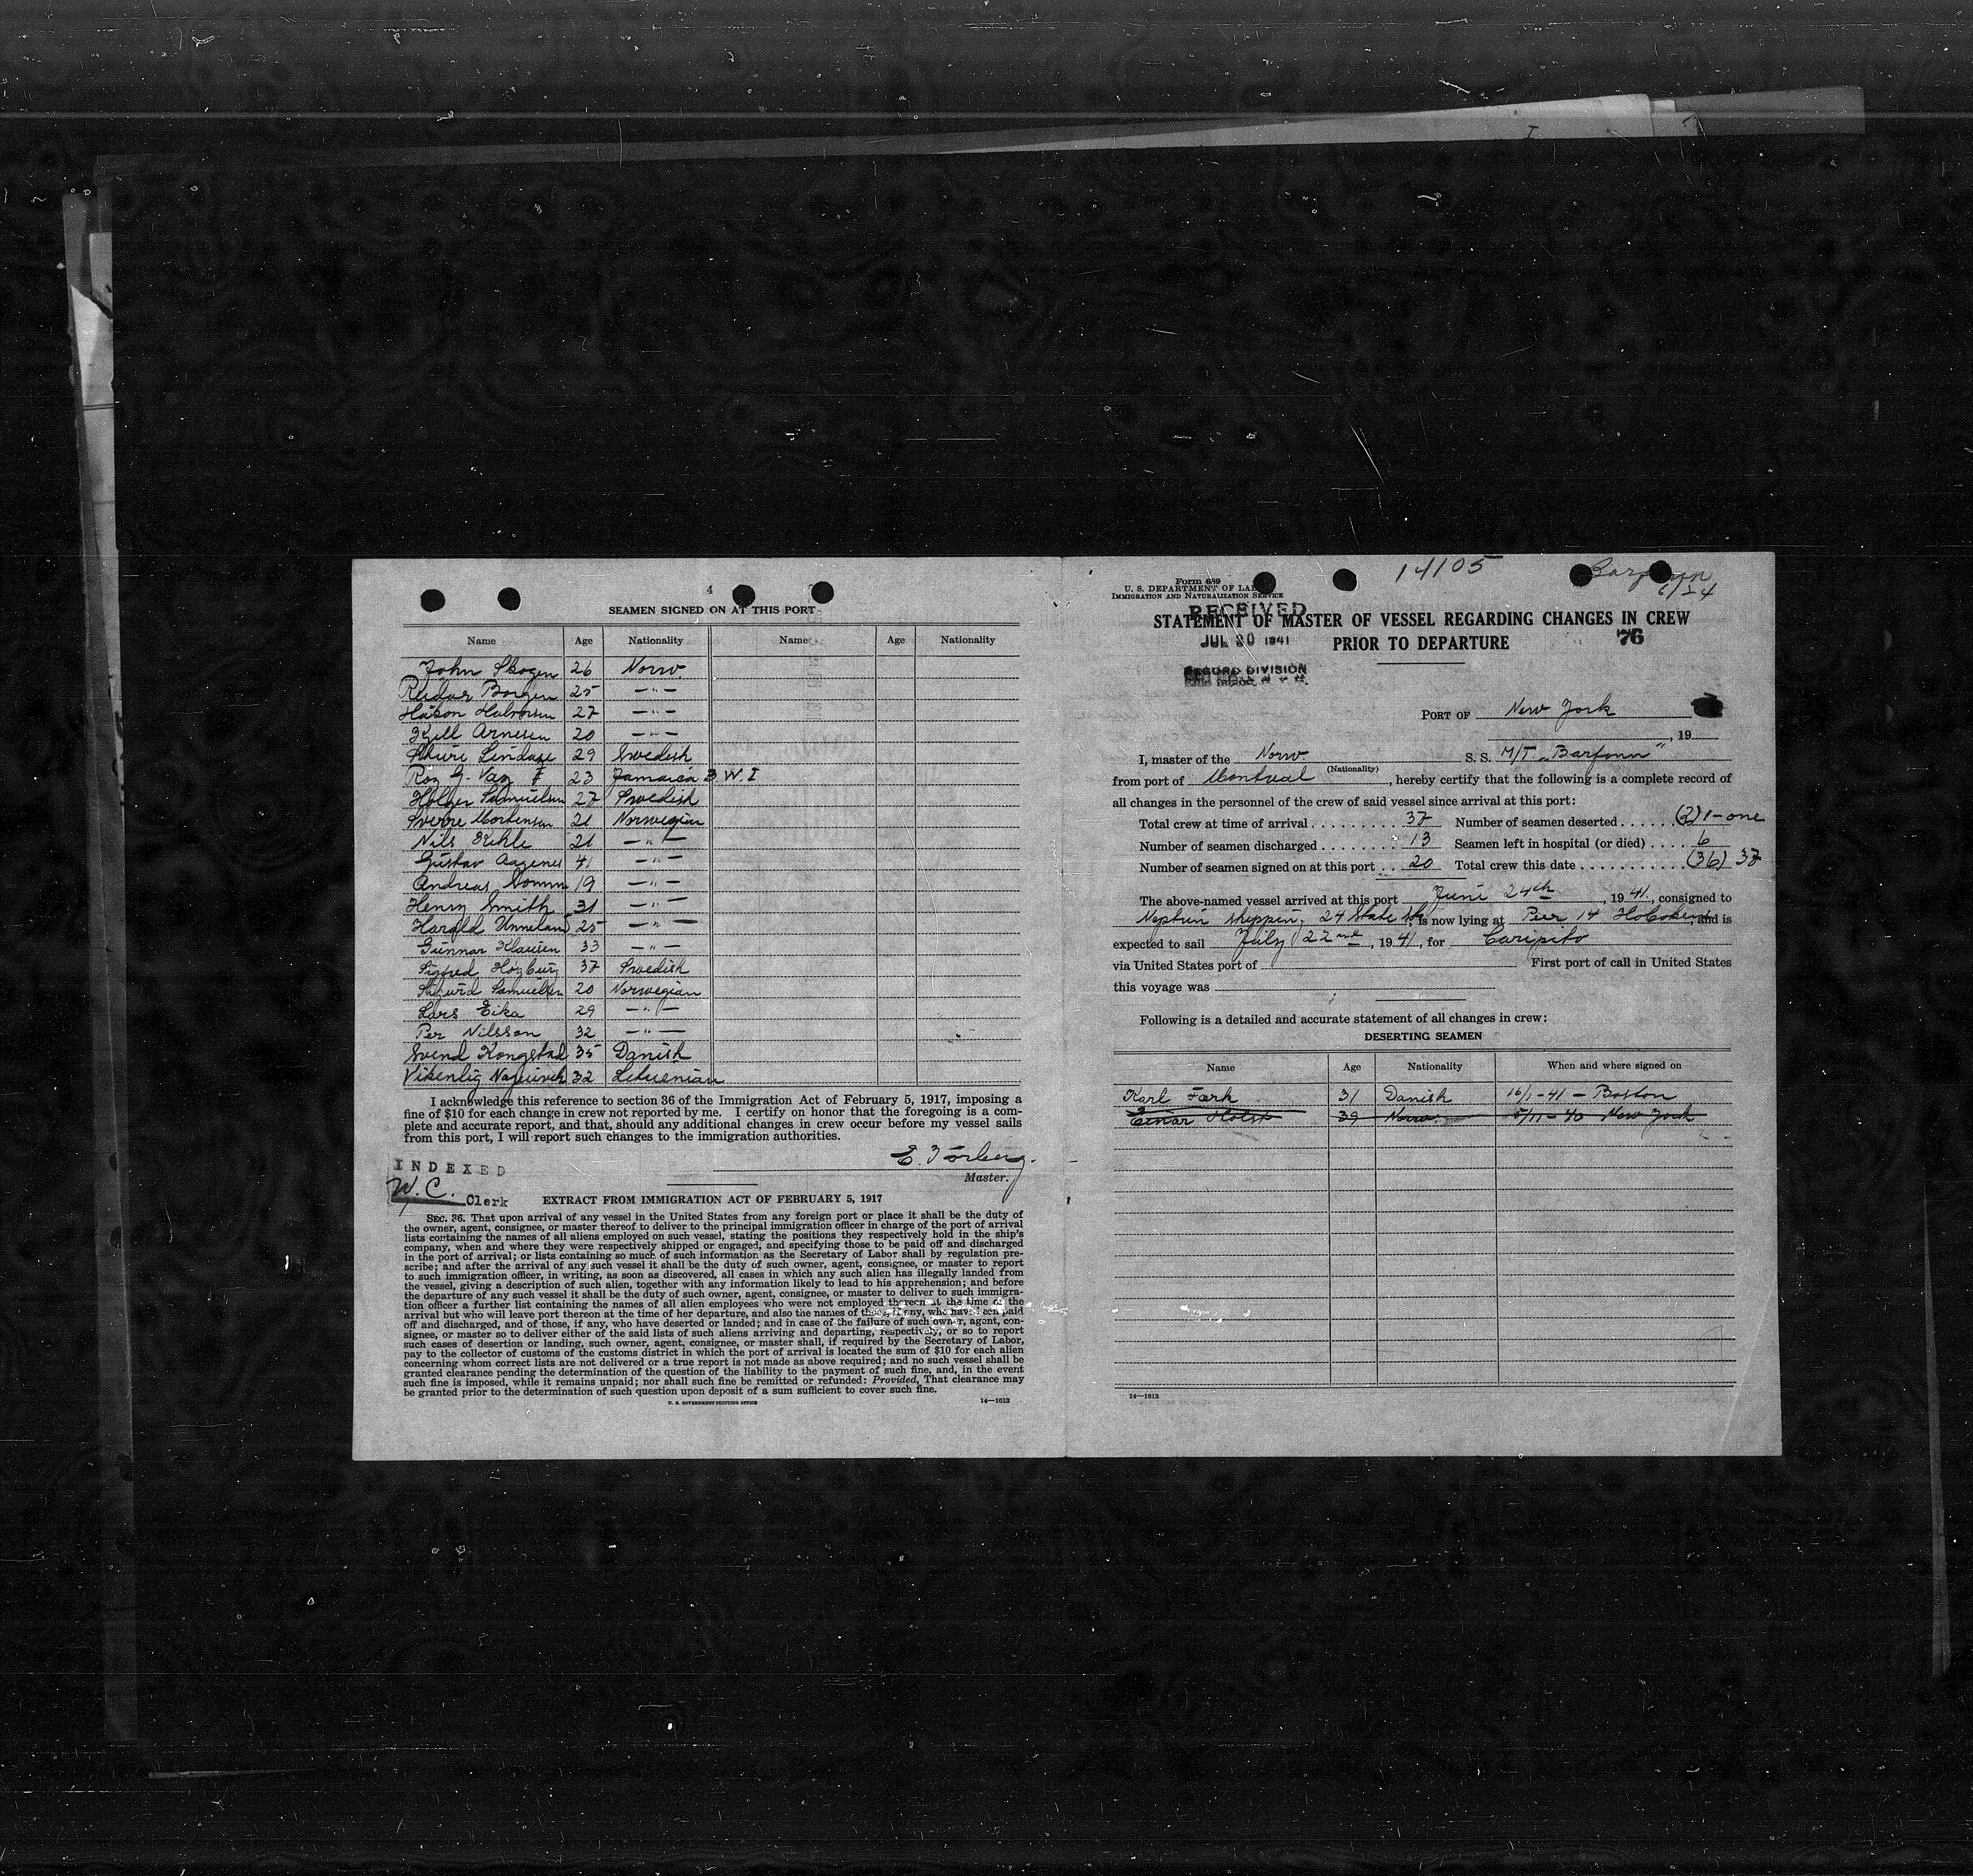 4
SEAMEN SIGNED ON AT THIS PORT
Name Age Nationality Name Age Nationality
John Skogen 26 Norw.
Reidar Borgen 25 — " —
Håkon Halvorsen 27 — " —
Kjell Arnesen 20 — " —
Lindage 29 Swedish
Roy G. Vaz 23 Jamaica B W. I
Holger Samuelsen 27 Swedish
Sverre Mortensen 21 Norwegian
Nils 21 — " —
Gustav 41 — " —
Andreas 19 — " —
Henry Smith 31 — " —
Harald Unneland 25 — " —
Gunnar Klausen 33 — " —
Sigfred 37 Swedish
Sigurd Samuelsen 20 Norwegian
Lars Eika 29 — " —
Per Nilsson 32 — " —
Svend Kongstad 35 Danish
32 Lituenian
I acknowledge this reference to section 36 of the Immigration Act of February 5, 1917, imposing a
fine of $10 for each change in crew not reported by me. I certify on honor that the foregoing is a com-
plete and accurate report, and that, should any additional changes in crew occur before my vessel sails
from this port, I will report such changes to the immigration authorities.
E. Torberg.
Master.
INDEXED
W. C. Clerk
EXTRACT FROM IMMIGRATION ACT OF FEBRUARY 5, 1917
SEC. 36. That upon arrival of any vessel in the United States from any foreign port or place it shall be the duty of
the owner, agent, consignee, or master thereof to deliver to the principal immigration officer in charge of the port of arrival
lists containing the names of all aliens employed on such vessel, stating the positions they respectively hold in the ship's
company, when and where they were respectively shipped or engaged, and specifying those to be paid off and discharged
in the port of arrival; or lists containing so much of such information as the Secretary of Labor shall by regulation pre-
scribe; and after the arrival of any such vessel it shall be the duty of such owner, agent, consignee, or master to report
to such immigration officer, in writing, as soon as discovered, all cases in which any such alien has illegally landed from
the vessel, giving a description of such alien, together with any information likely to lead to his apprehension; and before
the departure of any such vessel it shall be the duty of such owner, agent, consignee, or master to deliver to such immigra-
tion officer a further list containing the names of all alien employees who were not employed thereon at the time of the
arrival but who will leave port thereon at the time of her departure, and also the names of those, if any, who have been paid
off and discharged, and of those, if any, who have deserted or landed; and in case of the failure of such owner, agent, con-
signee, or master so to deliver either of the said lists of such aliens arriving and departing, respectively, or so to report
such cases of desertion or landing, such owner, agent, consignee, or master shall, if required by the Secretary of Labor,
pay to the collector of customs of the customs district in which the port of arrival is located the sum of $10 for each alien
concerning whom correct lists are not delivered or a true report is not made as above required; and no such vessel shall be
granted clearance pending the determination of the question of the liability to the payment of such fine, and, in the event
such fine is imposed, while it remains unpaid; nor shall such fine be remitted or refunded: Provided, That clearance may
be granted prior to the determination of such question upon deposit of a sum sufficient to cover such fine.
U. S. GOVERNMENT PRINTING OFFICE 14—1613
14105
Barfonn
6/24
Form 689
U. S. DEPARTMENT OF LA
IMMIGRATION AND NATURALIZATION SERVICE
RECEIVED
STATEMENT OF MASTER OF VESSEL REGARDING CHANGES IN CREW
PRIOR TO DEPARTURE
JUL 30 1941
76
RECORD DIVISION
PORT OF New York
, 19
I, master of the Norw. S. S. M/T "Barfonn"
(Nationality)
from port of Montreal, hereby certify that the following is a complete record of
all changes in the personnel of the crew of said vessel since arrival at this port:
Total crew at time of arrival 37 Number of seamen deserted (2) 1-one
Number of seamen discharged 13 Seamen left in hospital (or died) 6
Number of seamen signed on at this port 20 Total crew this date (36) 37
The above-named vessel arrived at this port June 24th, 1941, consigned to
Neptun Shipping, 24 State St, is now lying at Peer 14 Hoboken, and is
expected to sail July 22nd, 1941, for Caripito
via United States port of First port of call in United States
this voyage was
Following is a detailed and accurate statement of all changes in crew:
DESERTING SEAMEN
Name Age Nationality When and where signed on
Karl Fark 31 Danish 16/1-41 - Boston
Einar Holst 39 Norw. 5/11-40 New York
14—1613